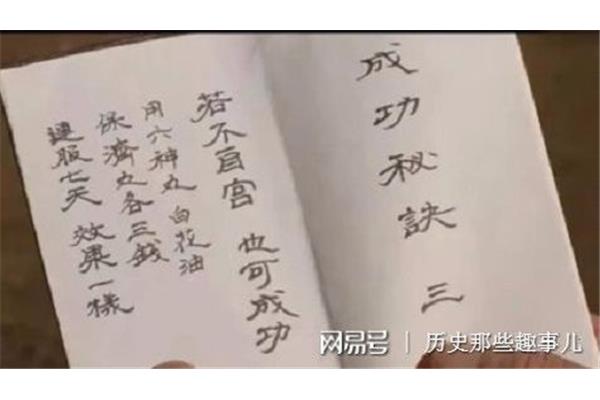 成功秘訣 三
若不自宮 也可成功
用六神丸 白花油
保濟丸各三錢
連服七天 效果一樣
网易号 | 历史那些趣事儿